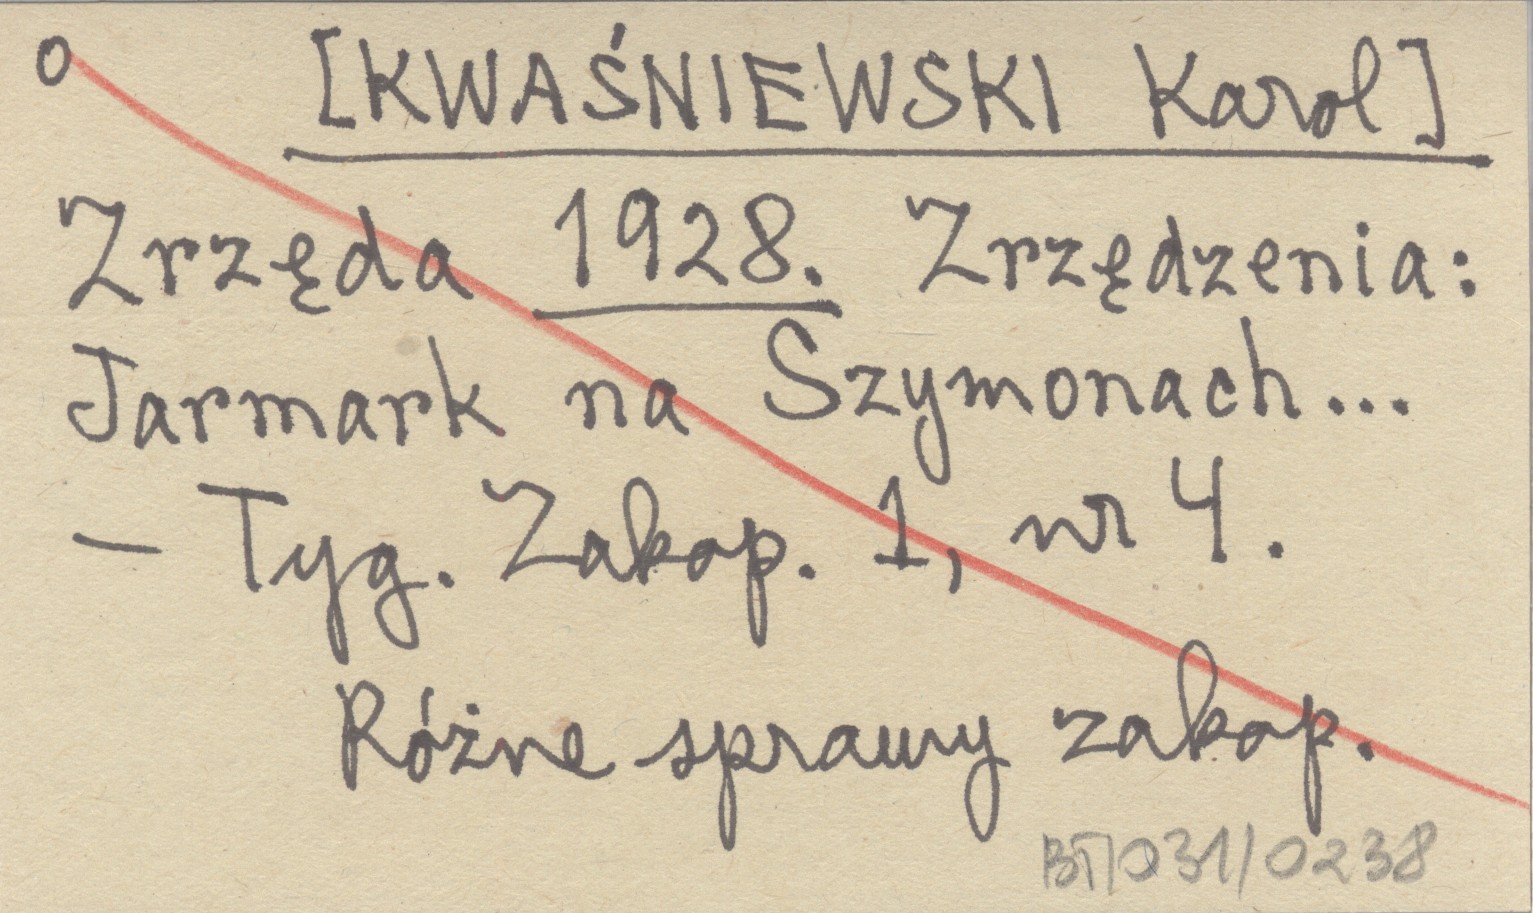 o [KWAŚNIEWSKI Karol]
Zrzęda 1928. Zrzędzenia:
Jarmark na Szymonach...
– Tyg. Zakop. 1, nr 4.
Różne sprawy zakop.
BT/031/0238